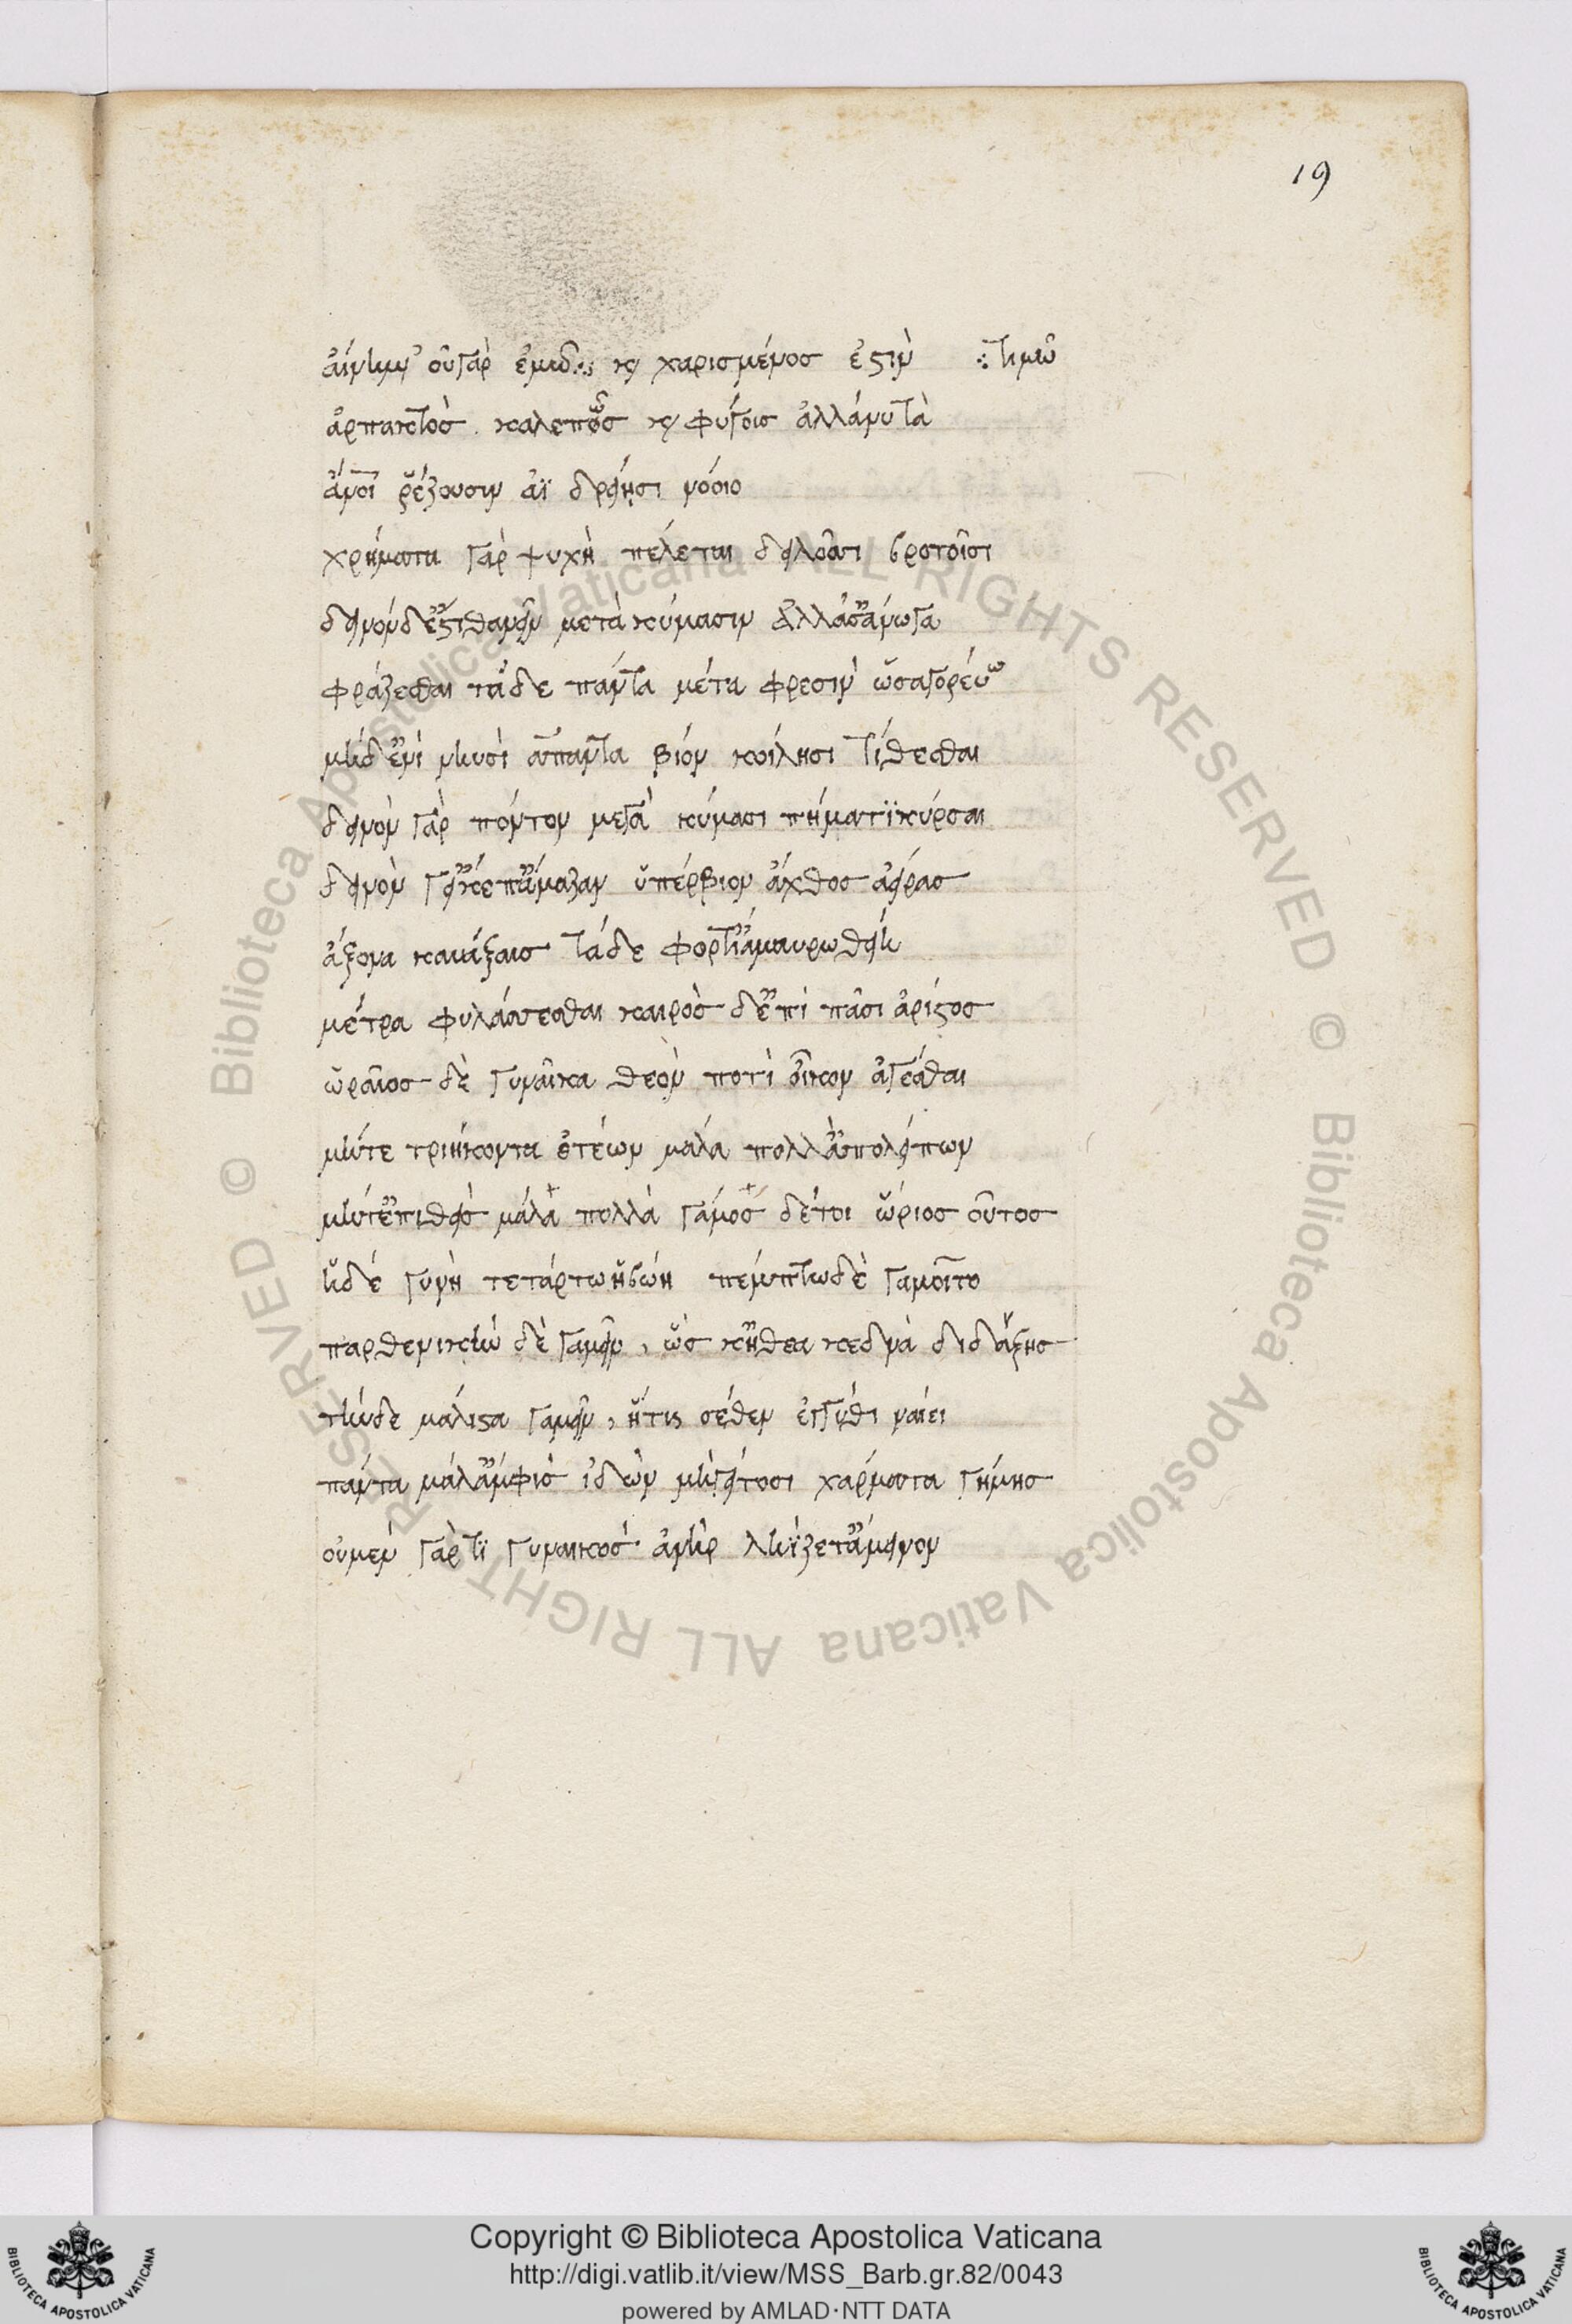 19
αἴνημ' οὐ γὰρ ἐμῶ ⁖ κὶ χαρισμένος ἐστὶν ⁖ θυμῶ
ἁρπακτὸς. καλεπῶς κὶ φύγοις ἀλλάνυτὰ
ἄνοι ῥέζουσιν ἀϊ δρείῃσι νόοιο
χρήματα γὰρ ψυχὴ πέλεται δειλοῖσι βροτοῖσι
δεινὸν δ' ἐστι θανεῖν μετὰ κύμασιν ἀλλὰ σ' ἄνωγα
φράζεσθαι τάδε πάντα μέτα φρεσὶν ὡς ἀγορεύω
μὴ δ' ἐνὶ νηυσὶ ἅπαντα βίον κοίλησι τίθεσθαι
δεινὸν γὰρ πόντου μετὰ κύμασι πήματι κύρσαι
δεινὸν γ' εἴ κ' ἐπ' ἄμαξαν ὑπέρβιον ἄχθος ἀείρας
ἄξονα καυάξαις τάδε φορτί' ἀμαυρωθείη
μέτρα φυλάσσεσθαι καιρὸς δ' ἐπὶ πᾶσι ἄριστος
ὡραῖος δὲ γυναῖκα θεὸν ποτὶ οἶκον ἄγεσθαι
μήτε τριήκοντα ἐτέων μάλα πολλ' ἀπολείπων
μήτ' ἐπιθεὶς μάλα πολλὰ γάμος δέτοι ὥριος οὗτος
ἡ δέ γυνὴ τετάρτω ἡβώη πέμπτω δὲ γαμοῖτο
παρθενικὴν δὲ γαμεῖν, ὥς κ' ἤθεα κεδνὰ διδάξῃς
τὴν δὲ μάλιστα γαμεῖν, ἥτις σέθεν ἐγγύθι ναίει
πάντα μάλ' ἀμφὶς ἰδὼν μὴ γείτοσι χάρματα γήμης
οὐ μεν γάρ τι γυναικὸς ἀνὴρ ληΐζετ' ἄμεινον
Copyright © Biblioteca Apostolica Vaticana
http://digi.vatlib.it/view/MSS_Barb.gr.82/0043
powered by AMLAD·NTT DATA
© Biblioteca Apostolica Vaticana ALL RIGHTS RESERVED © Biblioteca Apostolica Vaticana ALL RIGHTS RESERVED
BIBLIOTECA APOSTOLICA VATICANA
BIBLIOTECA APOSTOLICA VATICANA